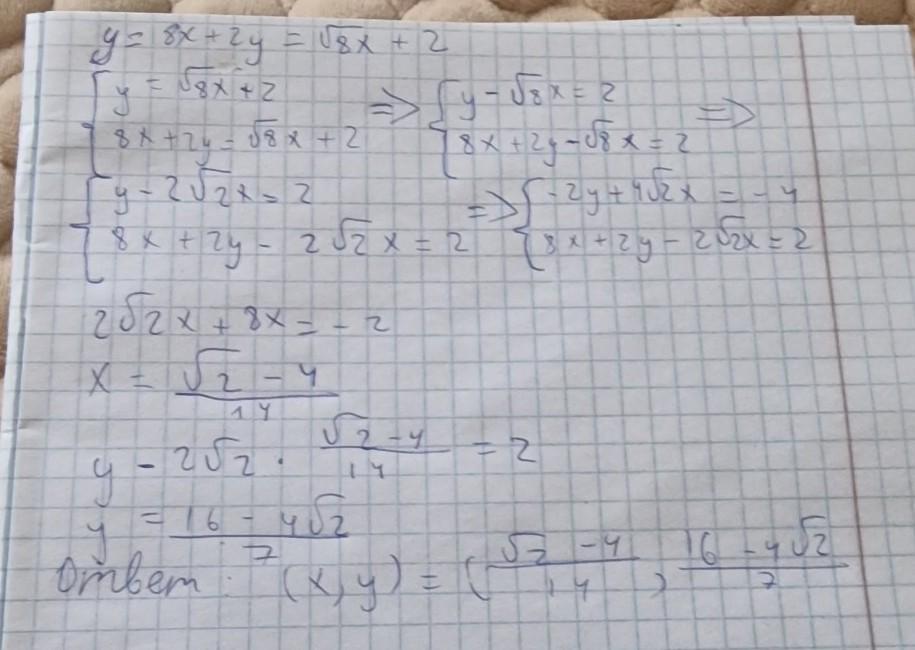 y = 8x + 2y = √8x + 2
{ y = √8x + 2 => { y - √8x = 2 =>
{ 8x + 2y = √8x + 2 { 8x + 2y - √8x = 2
{ y - 2√2x = 2 => { -2y + 4√2x = -4
{ 8x + 2y - 2√2x = 2 { 8x + 2y - 2√2x = 2
2√2x + 8x = -2
x = (√2 - 4)/14
y - 2√2 · (√2 - 4)/14 = 2
y = (16 - 4√2)/7
Ответ: (x, y) = ( (√2 - 4)/14 , (16 - 4√2)/7